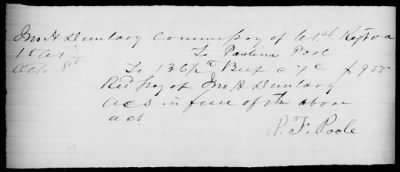 Jno H Dunlavy Commissary of 61st Regt Va
To Paulina Pool
Octo 8th To 136 lb Beef @ 7c $9 55
Recd pay of Jno H Dunlavy
ACS in full of the above
act
P. F. Poole